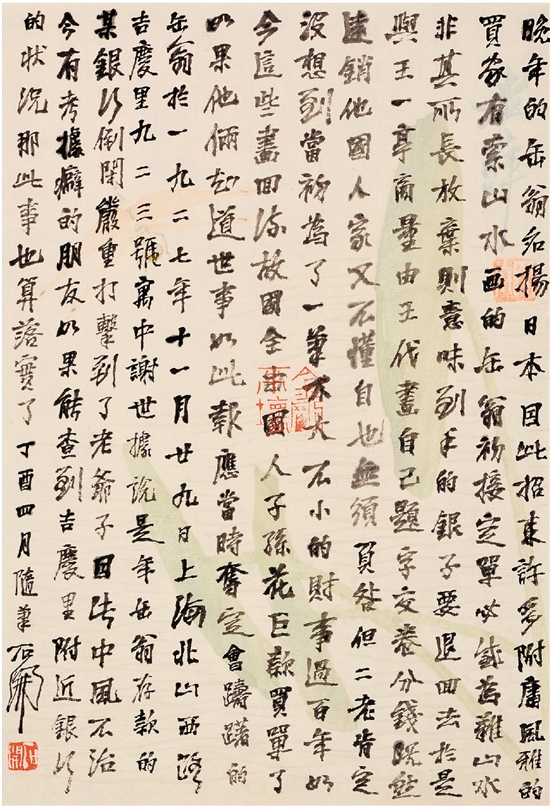 晚年的缶翁名揚日本因此招來許多附庸風雅的
買家有索山水画的缶翁初接定單必感為難山水
非其所長放棄則意味到手的銀子要退回去於是
與王一亭商量由王代畫自己題字交卷分錢既然
遠銷他國人家又不懂自也無須負咎但二老肯定
沒想到當初為了一筆不大不小的財事過百年如
今這些畫回流故國全未國人子孫花巨款買單了
如果他倆知道世事如此報應當時奮定會躊躇的
缶翁於一九二七年十一月廿九日上海北山西路
吉慶里九二三號寓中謝世據說是年缶翁存款的
某銀行倒閉嚴重打擊到了老爺子因此中風不治
今有考據癖的朋友如果能查到吉慶里附近銀行
的狀況那此事也算落實了丁酉四月隨筆石開